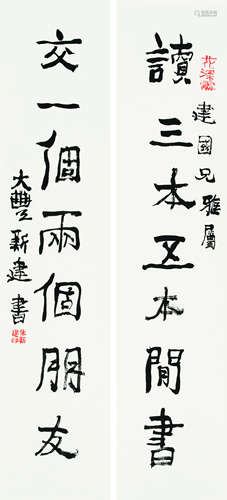 建國兄雅屬
讀三本五本閒書
交一個兩個朋友
大豐新建書